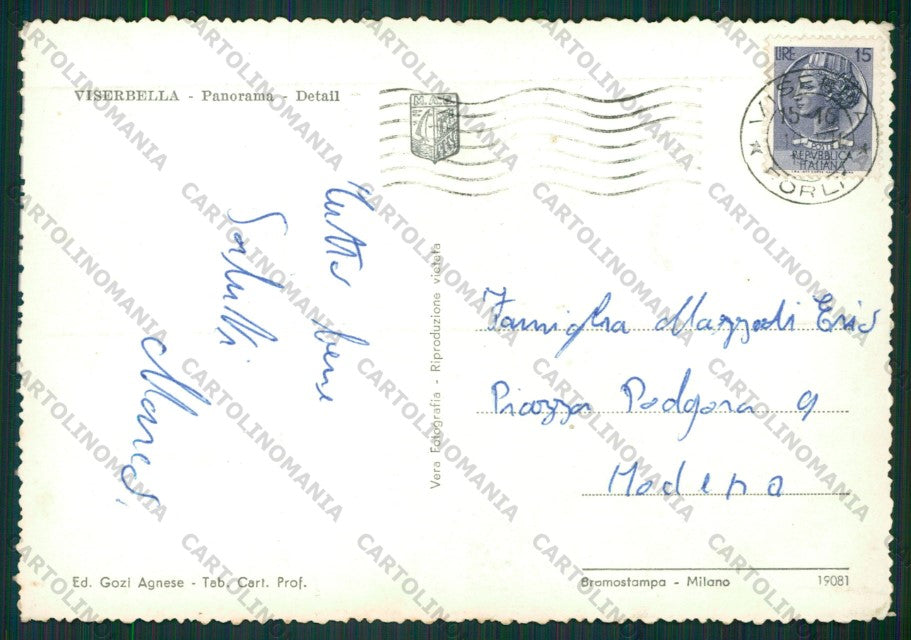 VISERBELLA - Panorama - Detail
M.A.
LIRE 15
REPVBBLICA
ITALIANA
VISERBA
15-16
* FORLI *
Tutto bene
Saluti
Marco
Vera Fotografia - Riproduzione vietata
Famiglia Mazzoli
Piazza Podgora 9
Modena
Ed. Gozi Agnese - Tab. Cart. Prof.
Bromostampa - Milano 19081
CARTOLINOMANIA